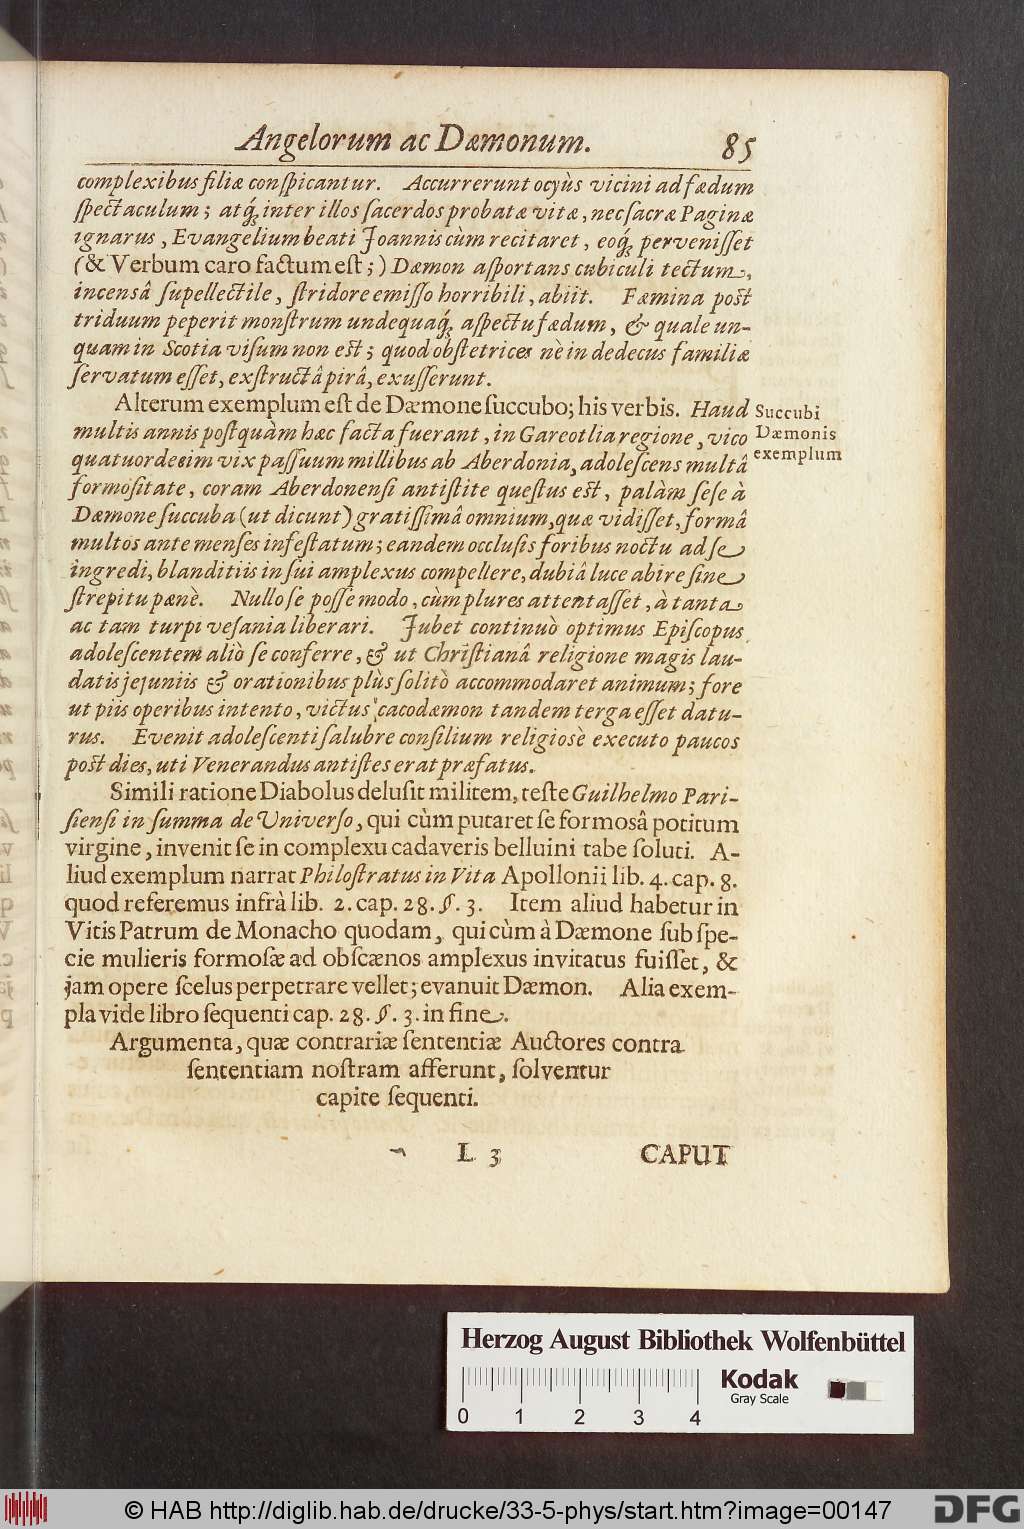 Angelorum ac Dæmonum. 85
complexibus filiæ conſpicantur. Accurrerunt ocyùs vicini ad fædum
ſpectaculum; atq́; inter illos ſacerdos probatæ vitæ, nec ſacræ Paginæ
ignarus, Evangelium beati Joannis cùm recitaret, eoq́; perveniſſet
(& Verbum caro factum eſt;) Dæmon aſportans cubiculi tectum,
incensâ ſupellectile, ſtridore emiſſo horribili, abiit. Fæmina poſt
triduum peperit monſtrum undequaq́; aſpectu fædum, & quale un-
quam in Scotia viſum non eſt; quod obſtetrices nè in dedecus familiæ
ſervatum eſſet, exſtructâ pirâ, exuſſerunt.
Alterum exemplum eſt de Dæmone ſuccubo; his verbis. Haud
Succubi
Dæmonis
exemplum
multis annis poſtquàm hæc facta fuerant, in Gareotlia regione, vico
quatuordecim vix paſſuum millibus ab Aberdonia, adoleſcens multâ
formoſitate, coram Aberdonenſi antiſtite queſtus eſt, palàm ſeſe à
Dæmone ſuccuba (ut dicunt) gratiſſimâ omnium, quæ vidiſſet, formâ
multos ante menſes infeſtatum; eandem occluſis foribus noctu ad ſe
ingredi, blanditiis in ſui amplexus compellere, dubiâ luce abire ſine
ſtrepitu pænè. Nullo ſe poſſe modo, cùm plures attentaſſet, à tanta
ac tam turpi veſania liberari. Jubet continuò optimus Epiſcopus
adoleſcentem aliò ſe conferre, & ut Chriſtianâ religione magis lau-
datis jejuniis & orationibus plùs ſolitò accommodaret animum; fore
ut piis operibus intento, victus cacodæmon tandem terga eſſet datu-
rus. Evenit adoleſcenti ſalubre conſilium religiosè executo paucos
poſt dies, uti Venerandus antiſtes erat præfatus.
Simili ratione Diabolus deluſit militem, teſte Guilhelmo Pari-
ſienſi in ſumma de Univerſo, qui cùm putaret ſe formosâ potitum
virgine, invenit ſe in complexu cadaveris belluini tabe ſoluti. A-
liud exemplum narrat Philoſtratus in Vita Apollonii lib. 4. cap. 8.
quod referemus infrà lib. 2. cap. 28. §. 3. Item aliud habetur in
Vitis Patrum de Monacho quodam, qui cùm à Dæmone ſub ſpe-
cie mulieris formoſæ ad obſcænos amplexus invitatus fuiſſet, &
jam opere ſcelus perpetrare vellet; evanuit Dæmon. Alia exem-
pla vide libro ſequenti cap. 28. §. 3. in fine.
Argumenta, quæ contrariæ ſententiæ Auctores contra
ſententiam noſtram afferunt, ſolventur
capite ſequenti.
L 3 CAPUT
Herzog August Bibliothek Wolfenbüttel
Kodak
Gray Scale
0 1 2 3 4
© HAB http://diglib.hab.de/drucke/33-5-phys/start.htm?image=00147
DFG